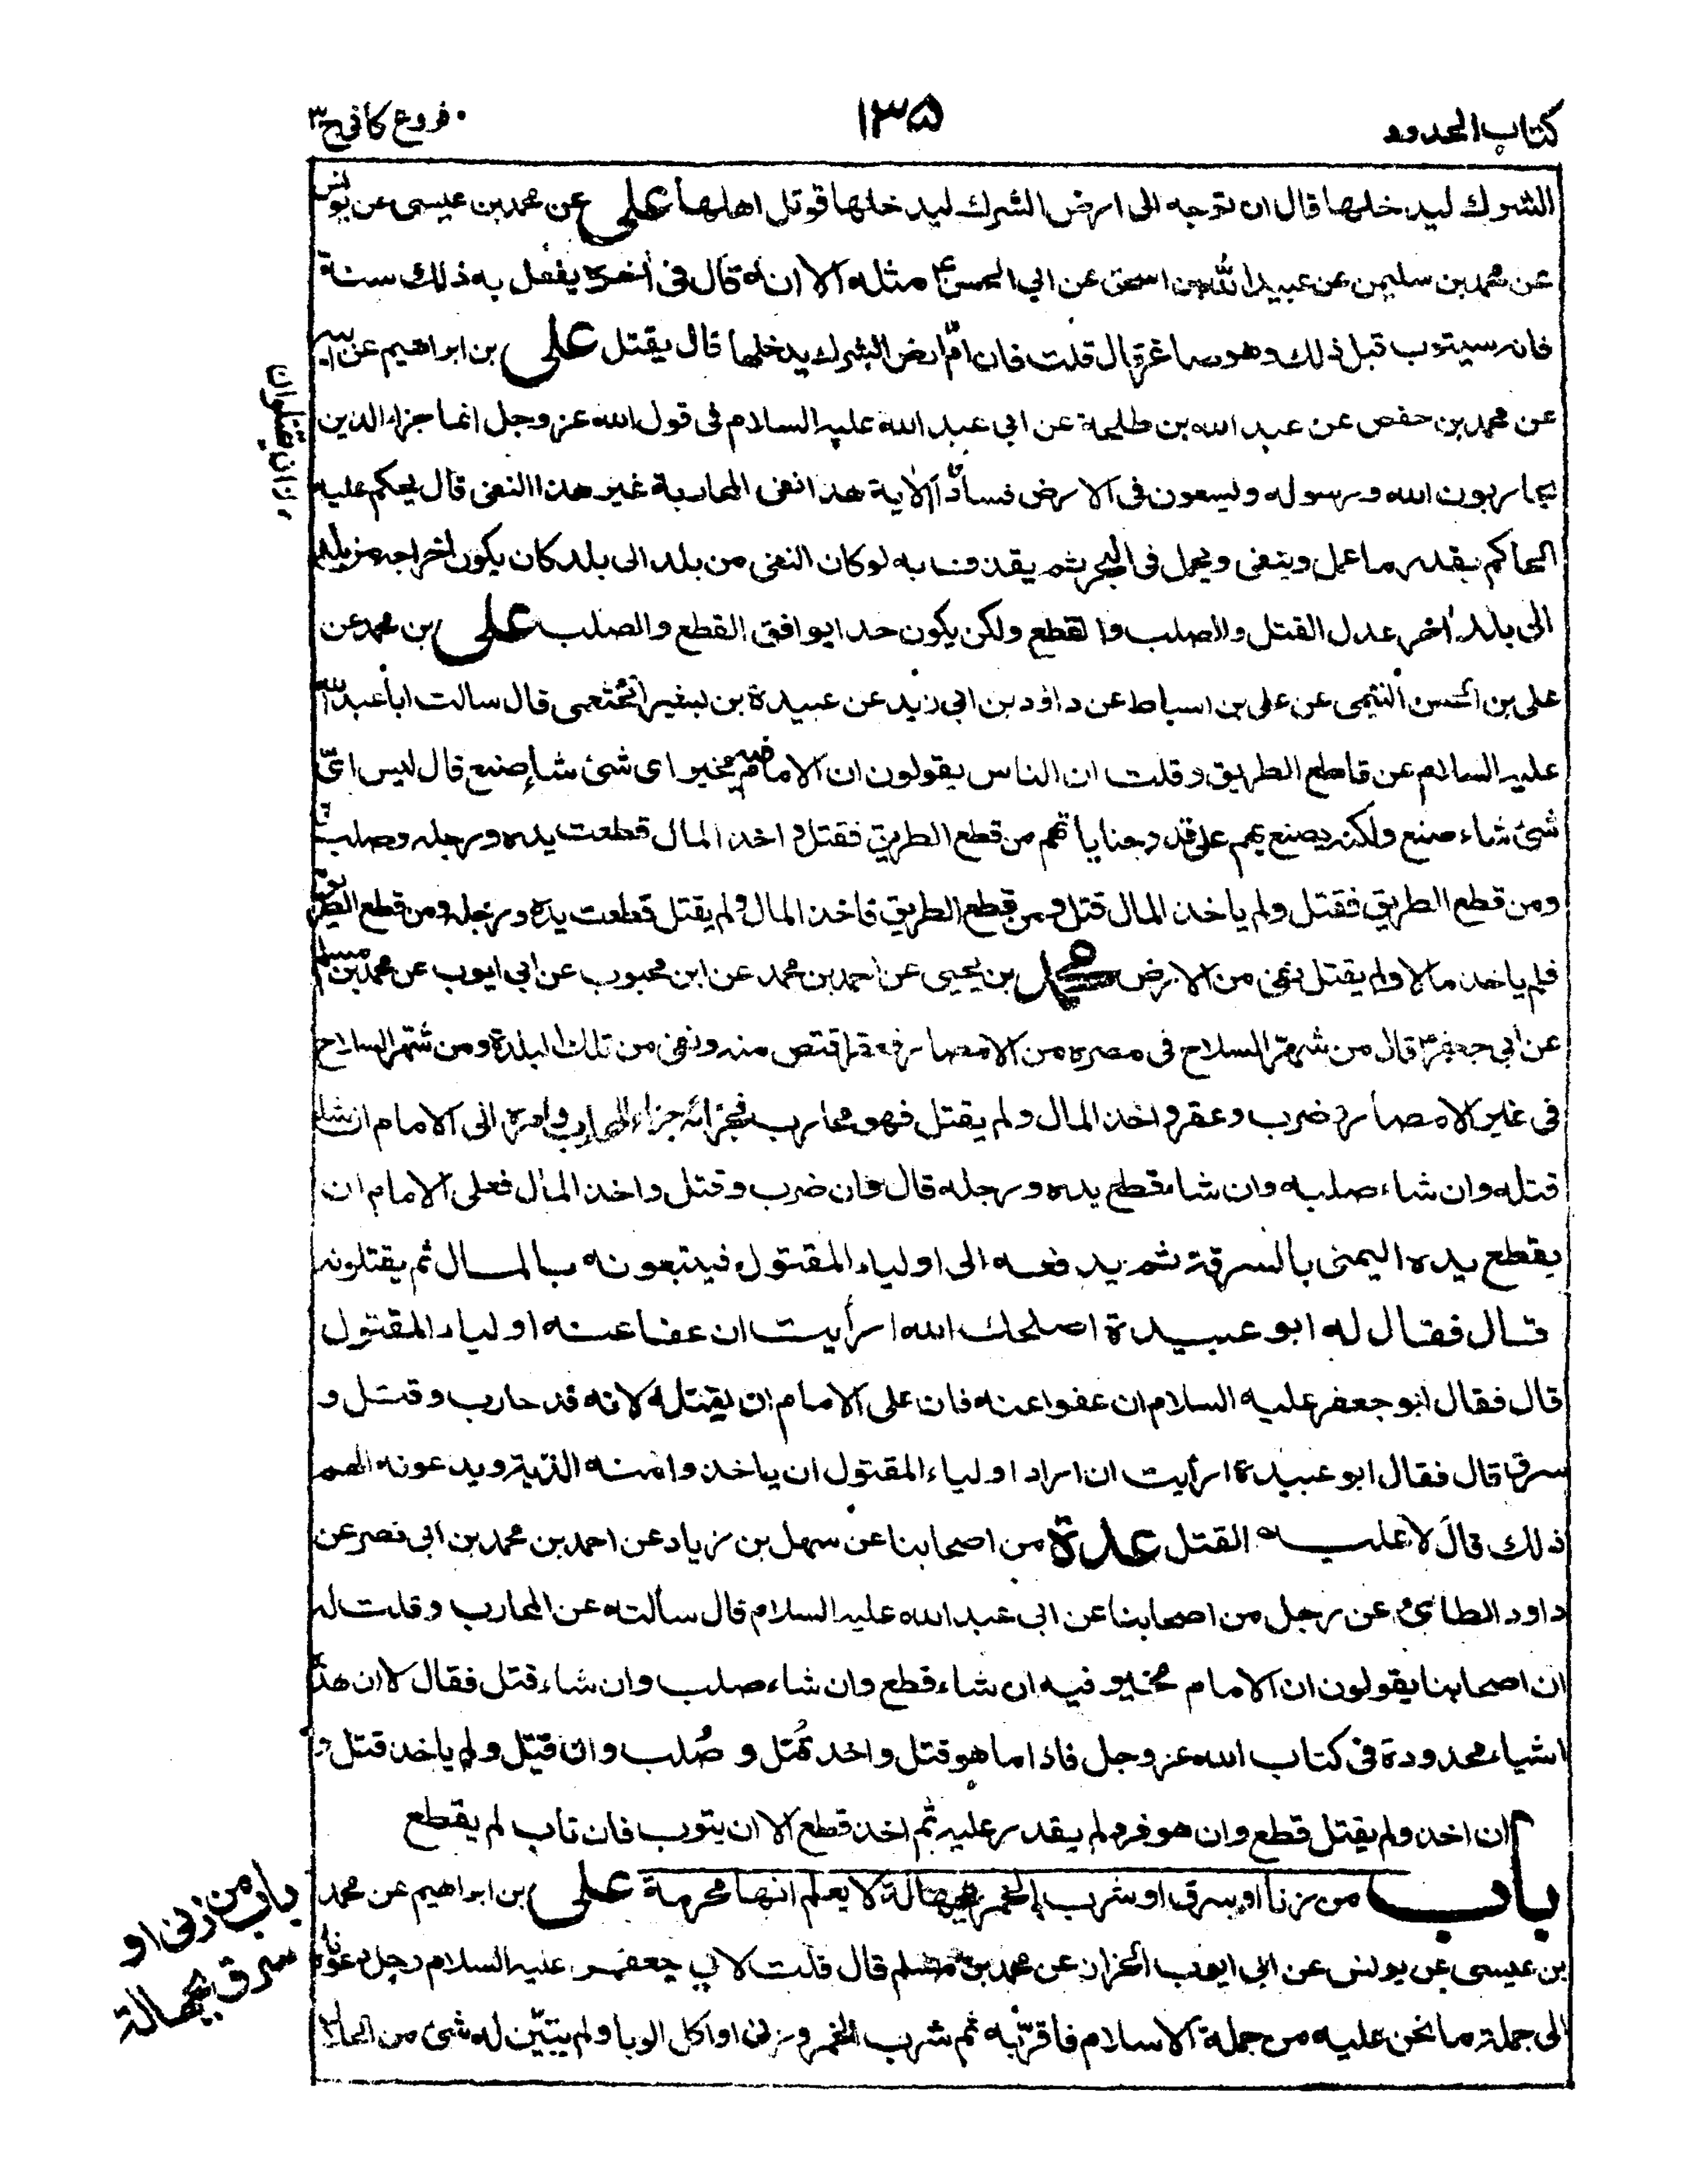 كتاب الحدود
١٣۵
فروع كافى ج٣
الشرك ليدخلها قال ان توجه الى ارض الشرك ليدخلها قوتل اهلها على عن محمد بن عيسى عن يونس
عن محمد بن سليمن عن عبيد الله بن اسحق عن ابي الحسن ع مثله الا انه قال فى اخره يفعل به ذلك سنة
فانه سيتوب قبل ذلك وهو صاغر قال قلت فان امّ ارض الشرك يدخلها قال يقتل على بن ابراهيم عن ابيه
عن محمد بن حفص عن عبد الله بن طلحة عن ابي عبد الله عليه السلام فى قول الله عز وجل انما جزاء الذين
يحاربون الله ورسوله ويسعون فى الارض فساداً الاية هذا نفى المحاربة غير هذا النفى قال يحكم عليه
الحاكم بقدر ما عمل وينفى ويحمل فى البحر ثم يقذف به لو كان النفى من بلد الى بلد كان يكون اخراجه من بلد
الى بلد اخر عدل القتل والصلب والقطع ولكن يكون حدا يوافق القطع والصلب على بن محمد عن
على بن الحسن التيمى عن على بن اسباط عن داود بن ابي زيد عن عبيدة بن بشير الخثعمى قال سالت ابا عبد الله
عليه السلام عن قاطع الطريق وقلت ان الناس يقولون ان الامام فيه مخير اى شئ شاء صنع قال ليس اىّ
شئ شاء صنع ولكنه يصنع بهم على قدر جناياتهم من قطع الطريق فقتل واخذ المال قطعت يده ورجله وصلب
ومن قطع الطريق فقتل ولم ياخذ المال قتل ومن قطع الطريق فاخذ المال ولم يقتل قطعت يده ورجله ومن قطع الطريق
فلم ياخذ مالا ولم يقتل نفى من الارض محمد بن يحيى عن احمد بن محمد عن ابن محبوب عن ابي ايوب عن محمد بن مسلم
عن ابي جعفر ع قال من شهر السلاح فى مصر من الامصار فعقر اقتص منه ونفى من تلك البلدة ومن شهر السلاح
فى غير الامصار وضرب وعقر واخذ المال ولم يقتل فهو محارب فجزائه جزاء المحارب وامره الى الامام ان شاء
قتله وان شاء صلبه وان شاء قطع يده ورجله قال وان ضرب وقتل واخذ المال فعلى الامام ان
يقطع يده اليمنى بالسرقة ثم يدفعه الى اولياء المقتول فيتبعونه بالمال ثم يقتلونه
قال فقال له ابو عبيدة اصلحك الله ارأيت ان عفا عنه اولياء المقتول
قال فقال ابو جعفر عليه السلام ان عفوا عنه فان على الامام ان يقتله لانه قد حارب وقتل و
سرق قال فقال ابو عبيدة ارأيت ان اراد اولياء المقتول ان ياخذوا منه الدية ويدعونه الهم
ذلك قال لا عليه القتل عدة من اصحابنا عن سهل بن زياد عن احمد بن محمد بن ابي نصر عن
داود الطائى عن رجل من اصحابنا عن ابي عبد الله عليه السلام قال سالته عن المحارب وقلت له
ان اصحابنا يقولون ان الامام مخير فيه ان شاء قطع وان شاء صلب وان شاء قتل فقال لا ان هذه
اشياء محدودة فى كتاب الله عز وجل فاذا ما هو قتل واخذ قُتل وصُلب وان قتل ولم ياخذ قتل و
ان اخذ ولم يقتل قطع وان هو فر ولم يقدر عليه ثم اخذ قطع الا ان يتوب فان تاب لم يقطع
باب من زنا او سرق او شرب الخمر بجهالة لا يعلم انها محرمة على بن ابراهيم عن محمد
بن عيسى عن يونس عن ابي ايوب الخزاز عن محمد بن مسلم قال قلت لابي جعفر عليه السلام رجل دعوناه
الى جملة ما نحن عليه من جملة الاسلام فاقرّ به ثم شرب الخمر وزنى او اكل الربا ولم يتبيّن له شئ من الحلال
باب من زنى او
سرق بجهالة